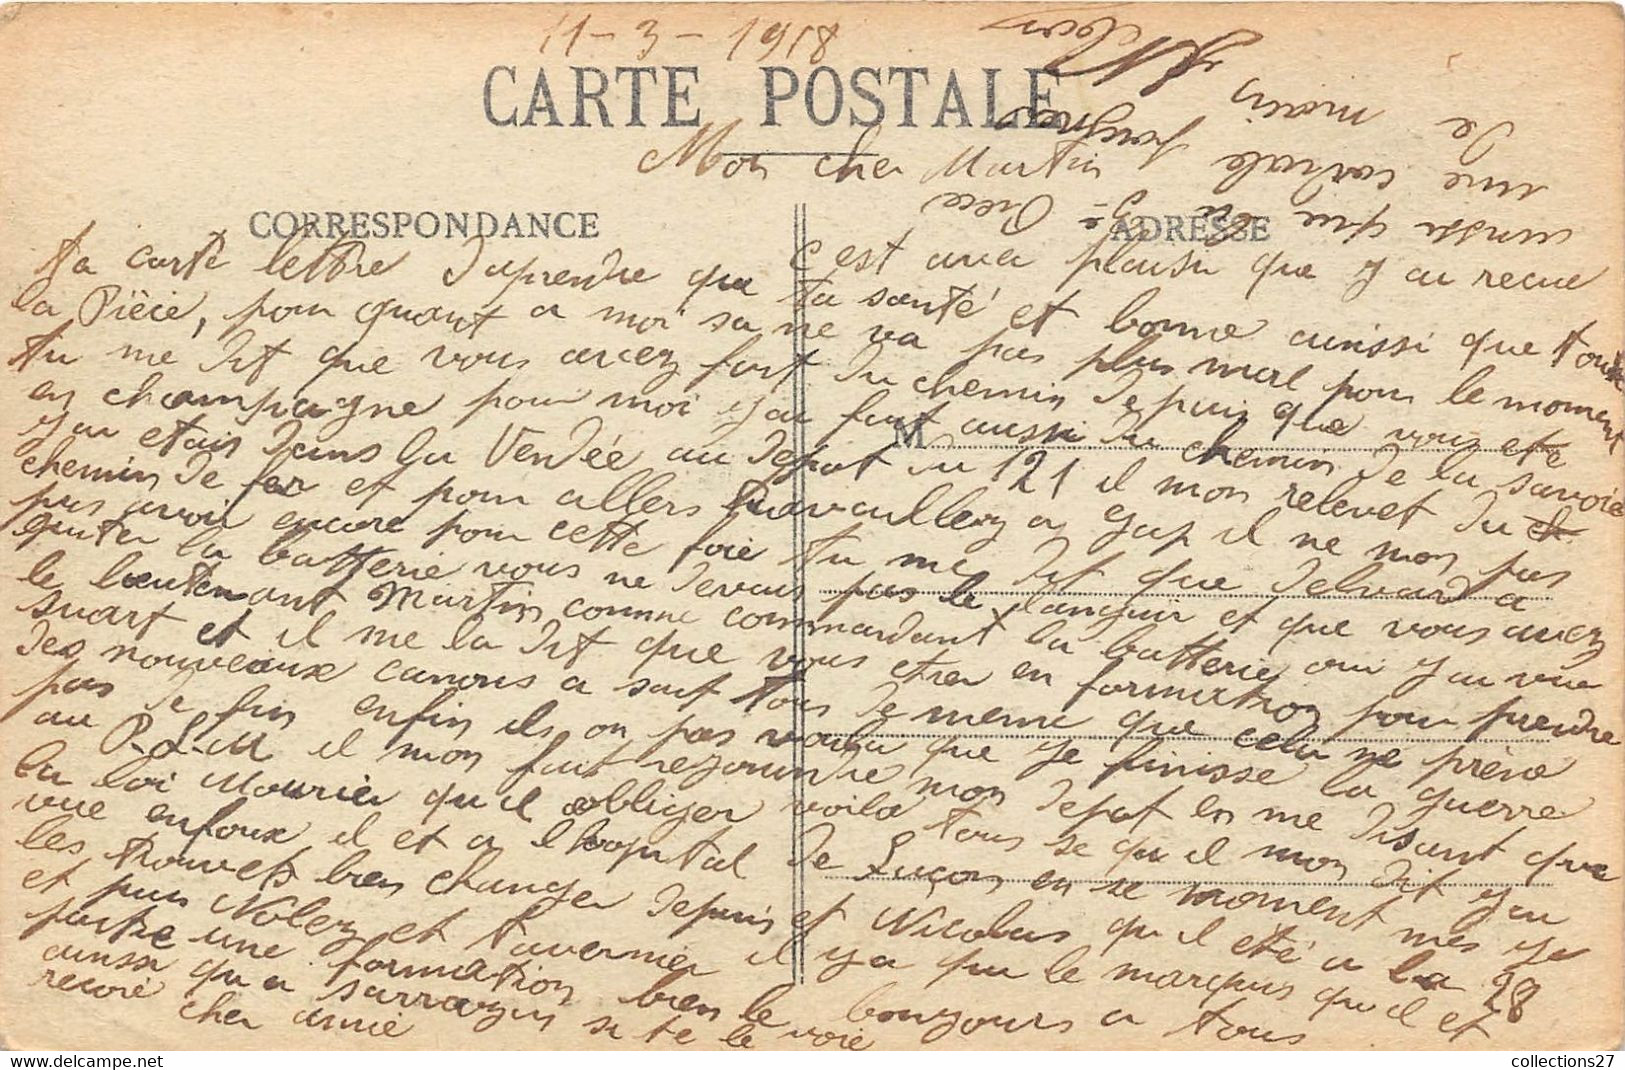 11-3-1918
CARTE POSTALE
Mon cher Martin
CORRESPONDANCE
ADRESSE
c'est avec plaisir que j'ai recue
ta carte lettre d'aprendre que ta santé et bonne aussi que toute
la Pièce, pour quant a moi sa ne va pas plus mal pour le moment
tu me dit que vous avez fait du chemin depuis que vous ete
en champagne pour moi j'ai fait aussi du chemin de la savoie
j'ai etais dans la Vendée au depot du 121 il mon relevet du ch
chemin de fer et pour allers travaillez a Gap il ne mon pas
pas avoir encore pour cette foie tu me dit que Delvard a
quiter la batterie vous ne devais pas le languir et que vous avez
le lieutenant Martin comme commandant la batterie oui j'ai vue
suart et il me la dit que vous etiez en formation pour prendre
des nouveaux canons a sait tous de meme que celui ne prève
pas de fin enfin ils on pas voulu que je finisse la guerre
au P.L.M il mon fait rejoindre mon depot en me disant que
la loi Mourier qu'il obliger voila tous se qu'il mon dit j'ai
vue enfoux il et a l'hopital de Luçon en se moment mes je
les trouvets bien changer depuis et Nicolas qu'il eté a la 28
et puis Nolez et tavernier il y a que le marquis qu'il et
partie une formation bien le bonjours a tous
aussi qu'a sarrazin si te le voie
recoie cher amie
ainsi que la 3e Pièce
une cordiale poignee
de main
M
collections27